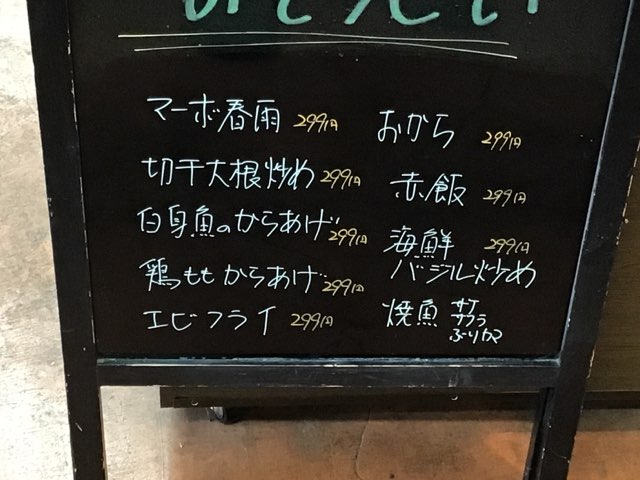 マーボ春雨 299円
切干大根炒め 299円
白身魚のからあげ 299円
鶏ももからあげ 299円
エビフライ 299円
おから 299円
赤飯 299円
海鮮 299円
バジル炒め
焼魚 サケ
サワラ
ぶりカマ